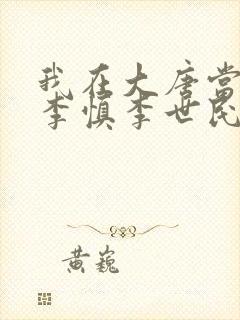 我在大唐当
李慎李世民
黄巍